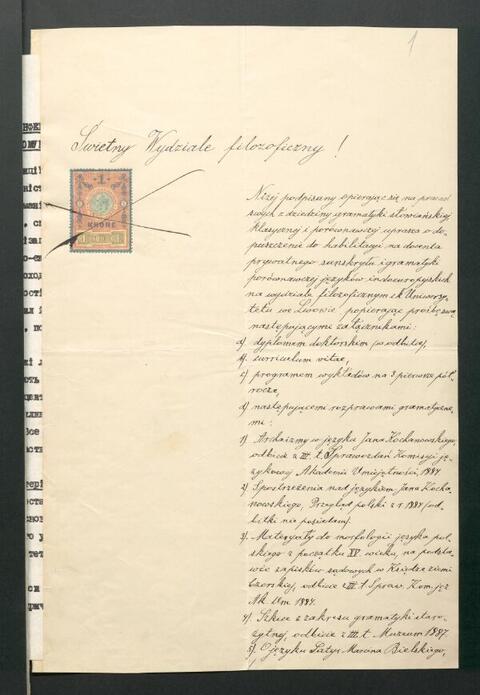 1
Świetny Wydziale filozoficzny!
1
KRONE
Niżej podpisany opierając się na pracach
swych z dziedziny gramatyki słowiańskiej
klasycznej i porównawczej uprasza o do-
puszczenie do habilitacyi na docenta
prywatnego sanskrytu i gramatyki
porównawczej języków indoeuropejskich
na wydziale filozoficznym c.k. Uniwersy-
tetu we Lwowie popierając prośbę swą
następującymi załącznikami:
a) dyplomem doktorskim (w odbitce),
b) curriculum vitae,
c) programem wykładów na 3 pierwsze pół-
rocza,
d) następującemi rozprawami gramatyczne-
mi:
1) Archaizmy w języku Jana Kochanowskiego,
odbicie z III. t. Sprawozdań Komisyi ję-
zykowej Akademii Umiejętności, 1884
2) Spostrzeżenia nad językiem Jana Kocha-
nowskiego, Przegląd polski z r. 1884 (od-
bitki nie posiadam).
3) Materyały do morfologii języka pol-
skiego z początku XV. wieku, na podsta-
wie zapisków sądowych w Księdze ziemi
Czerskiej, odbicie z III. t. Spraw. Kom. jęz.
Ak. Um. 1884.
4) Szkice z zakresu gramatyki staro-
żytnej, odbicie z III. t. Muzeum 1887.
5) O języku Satyr Marcina Bielskiego,